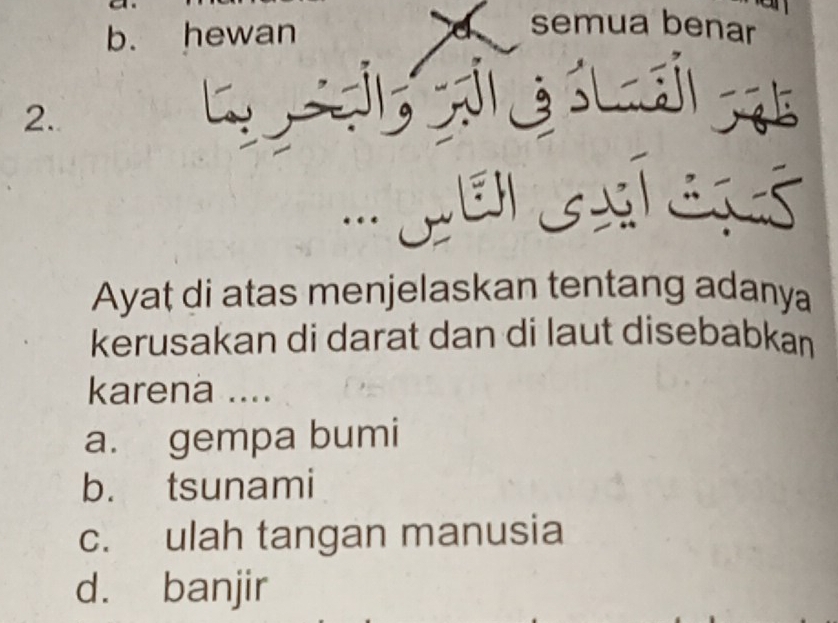 b. hewan d. semua benar
2. ظَهَرَ الْفَسَادُ فِي الْبَرِّ وَالْبَحْرِ بِمَا
كَسَبَتْ اَيْدِى النَّاسِ ...
Ayat di atas menjelaskan tentang adanya
kerusakan di darat dan di laut disebabkan
karena ....
a. gempa bumi
b. tsunami
c. ulah tangan manusia
d. banjir